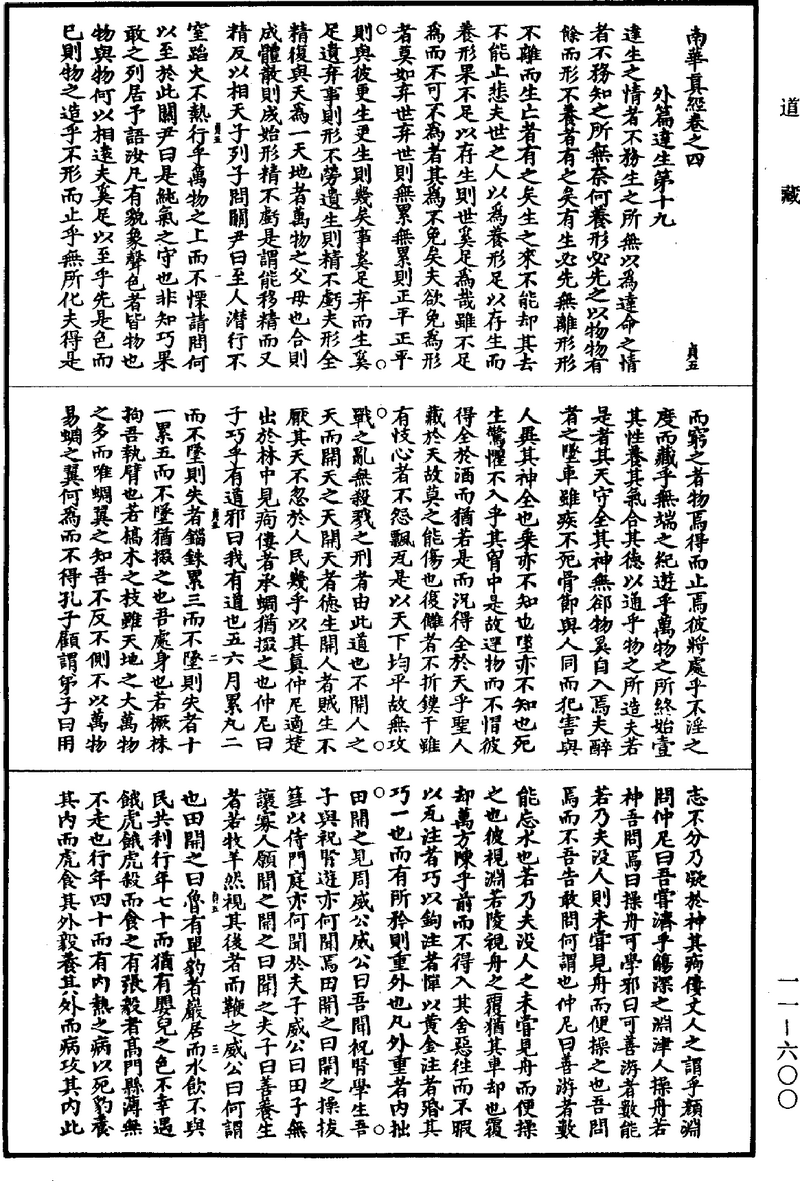 道藏
南華真經卷之四
貞五
外篇達生第十九
達生之情者不務生之所無以為達命之情
者不務知之所無奈何養形必先之以物物有
餘而形不養者有之矣有生必先無離形形
不離而生亡者有之矣生之來不能却其去
不能止悲夫世之人以為養形足以存生而
養形果不足以存生則世奚足為哉雖不足
為而不可不為者其為不免矣夫欲免為形
者莫如弃世弃世則無累無累則正平正平
則與彼更生更生則幾矣事奚足弃而生奚
足遺弃事則形不勞遺生則精不虧夫形全
精復與天為一天地者萬物之父母也合則
成體散則成始形精不虧是謂能移精而又
精反以相天子列子問關尹曰至人潛行不
窒蹈火不熱行乎萬物之上而不慄請問何
以至於此關尹曰是純氣之守也非知巧果
敢之列居予語汝凡有貌象聲色者皆物也
物與物何以相遠夫奚足以至乎先是色而
已則物之造乎不形而止乎無所化夫得是
而窮之者物焉得而止焉彼將處乎不淫之
度而藏乎無端之紀遊乎萬物之所終始壹
其性養其氣合其德以通乎物之所造夫若
是者其天守全其神無郤物奚自入焉夫醉
者之墜車雖疾不死骨節與人同而犯害與
人異其神全也乘亦不知也墜亦不知也死
生驚懼不入乎其胷中是故遻物而不慴彼
得全於酒而猶若是而況得全於天乎聖人
藏於天故莫之能傷也復讎者不折鏌干雖
有忮心者不怨飄瓦是以天下均平故無攻
戰之亂無殺戮之刑者由此道也不開人之
天而開天之天開天者德生開人者賊生不
厭其天不忽於人民幾乎以其真仲尼適楚
出於林中見痀僂者承蜩猶掇之也仲尼曰
子巧乎有道邪曰我有道也五六月累丸二
而不墜則失者錙銖累三而不墜則失者十
一累五而不墜猶掇之也吾處身也若橛株
拘吾執臂也若槁木之枝雖天地之大萬物
之多而唯蜩翼之知吾不反不側不以萬物
易蜩之翼何為而不得孔子顧謂弟子曰用
志不分乃凝於神其痀僂丈人之謂乎顏淵
問仲尼曰吾嘗濟乎觴深之淵津人操舟若
神吾問焉曰操舟可學邪曰可善游者數能
若乃夫沒人則未嘗見舟而便操之也吾問
焉而不吾告敢問何謂也仲尼曰善游者數
能忘水也若乃夫沒人之未嘗見舟而便操
之也彼視淵若陵視舟之覆猶其車却也覆
却萬方陳乎前而不得入其舍惡往而不暇
以瓦注者巧以鉤注者憚以黃金注者殙其
巧一也而有所矜則重外也凡外重者內拙
田開之見周威公威公曰吾聞祝腎學生吾
子與祝腎遊亦何聞焉田開之曰開之操拔
篲以侍門庭亦何聞於夫子威公曰田子無
讓寡人願聞之開之曰聞之夫子曰善養生
者若牧羊然視其後者而鞭之威公曰何謂
也田開之曰魯有單豹者巖居而水飲不與
民共利行年七十而猶有嬰兒之色不幸遇
餓虎餓虎殺而食之有張毅者髙門縣薄無
不走也行年四十而有內熱之病以死豹養
其內而虎食其外毅養其外而病攻其內此
一一—六〇〇